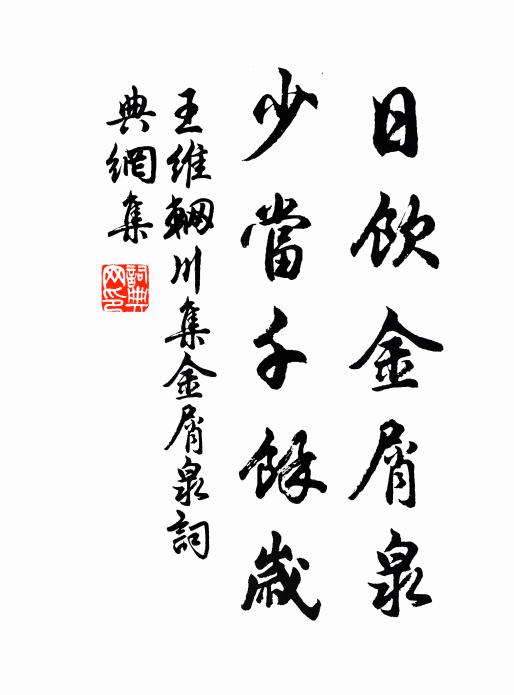 日飲金屑泉
少當千餘歲
王維輞川集金屑泉詞
典網集
詞典網印